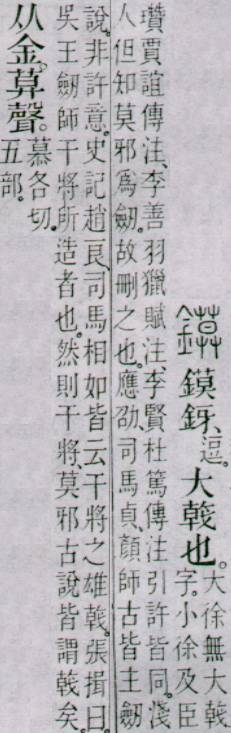 鏌 鏌釾、逗。大戟也。大徐無大戟
字。小徐及臣
瓚賈誼傳注、李善羽獵賦注、李賢杜篤傳注引許皆同。淺
人但知莫邪爲劒。故刪之也。應劭、司馬貞、顏師古皆主劒
說。非許意。史記趙良、司馬相如皆云干將之雄戟。張揖曰。
吳王劒師干將所造者也。然則干將、莫邪古說皆謂戟矣。
从金莫聲。慕各切。
五部。